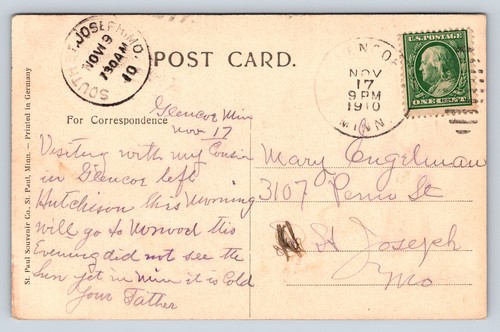 SOUTH ST. JOSEPH, MO.
NOV 19
730AM
10
POST CARD.
GLENCOE
NOV
17
9 PM
1910
MINN.
U.S. POSTAGE
ONE CENT
Glencoe Min
Nov 17
For Correspondence
Visiting with my Cousin
in Glencoe left
Hutcheson this Morning
will go to Norwood this
Evening did not see the
Sun yet in Minn it is Cold
Your Father
Mary Engelman
3107 Penn St
St Joseph
Mo
St. Paul Souvenir Co., St. Paul, Minn. — Printed in Germany